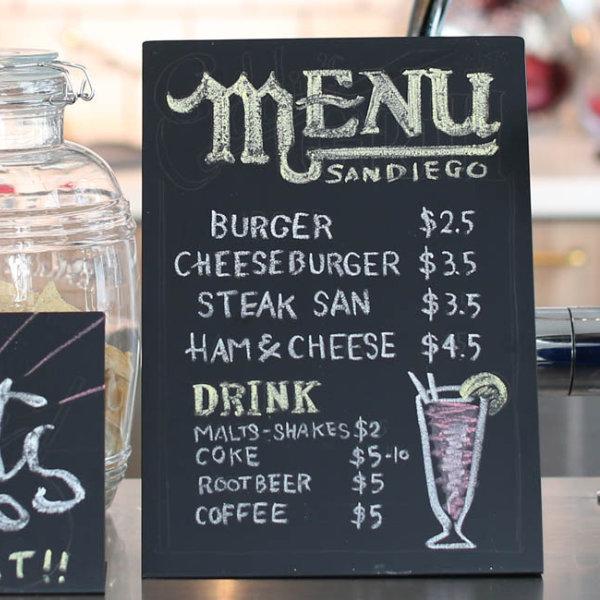 MENU
SANDIEGO
BURGER $2.5
CHEESEBURGER $3.5
STEAK SAN $3.5
HAM & CHEESE $4.5
DRINK
MALTS-SHAKES $2
COKE $5-10
ROOTBEER $5
COFFEE $5